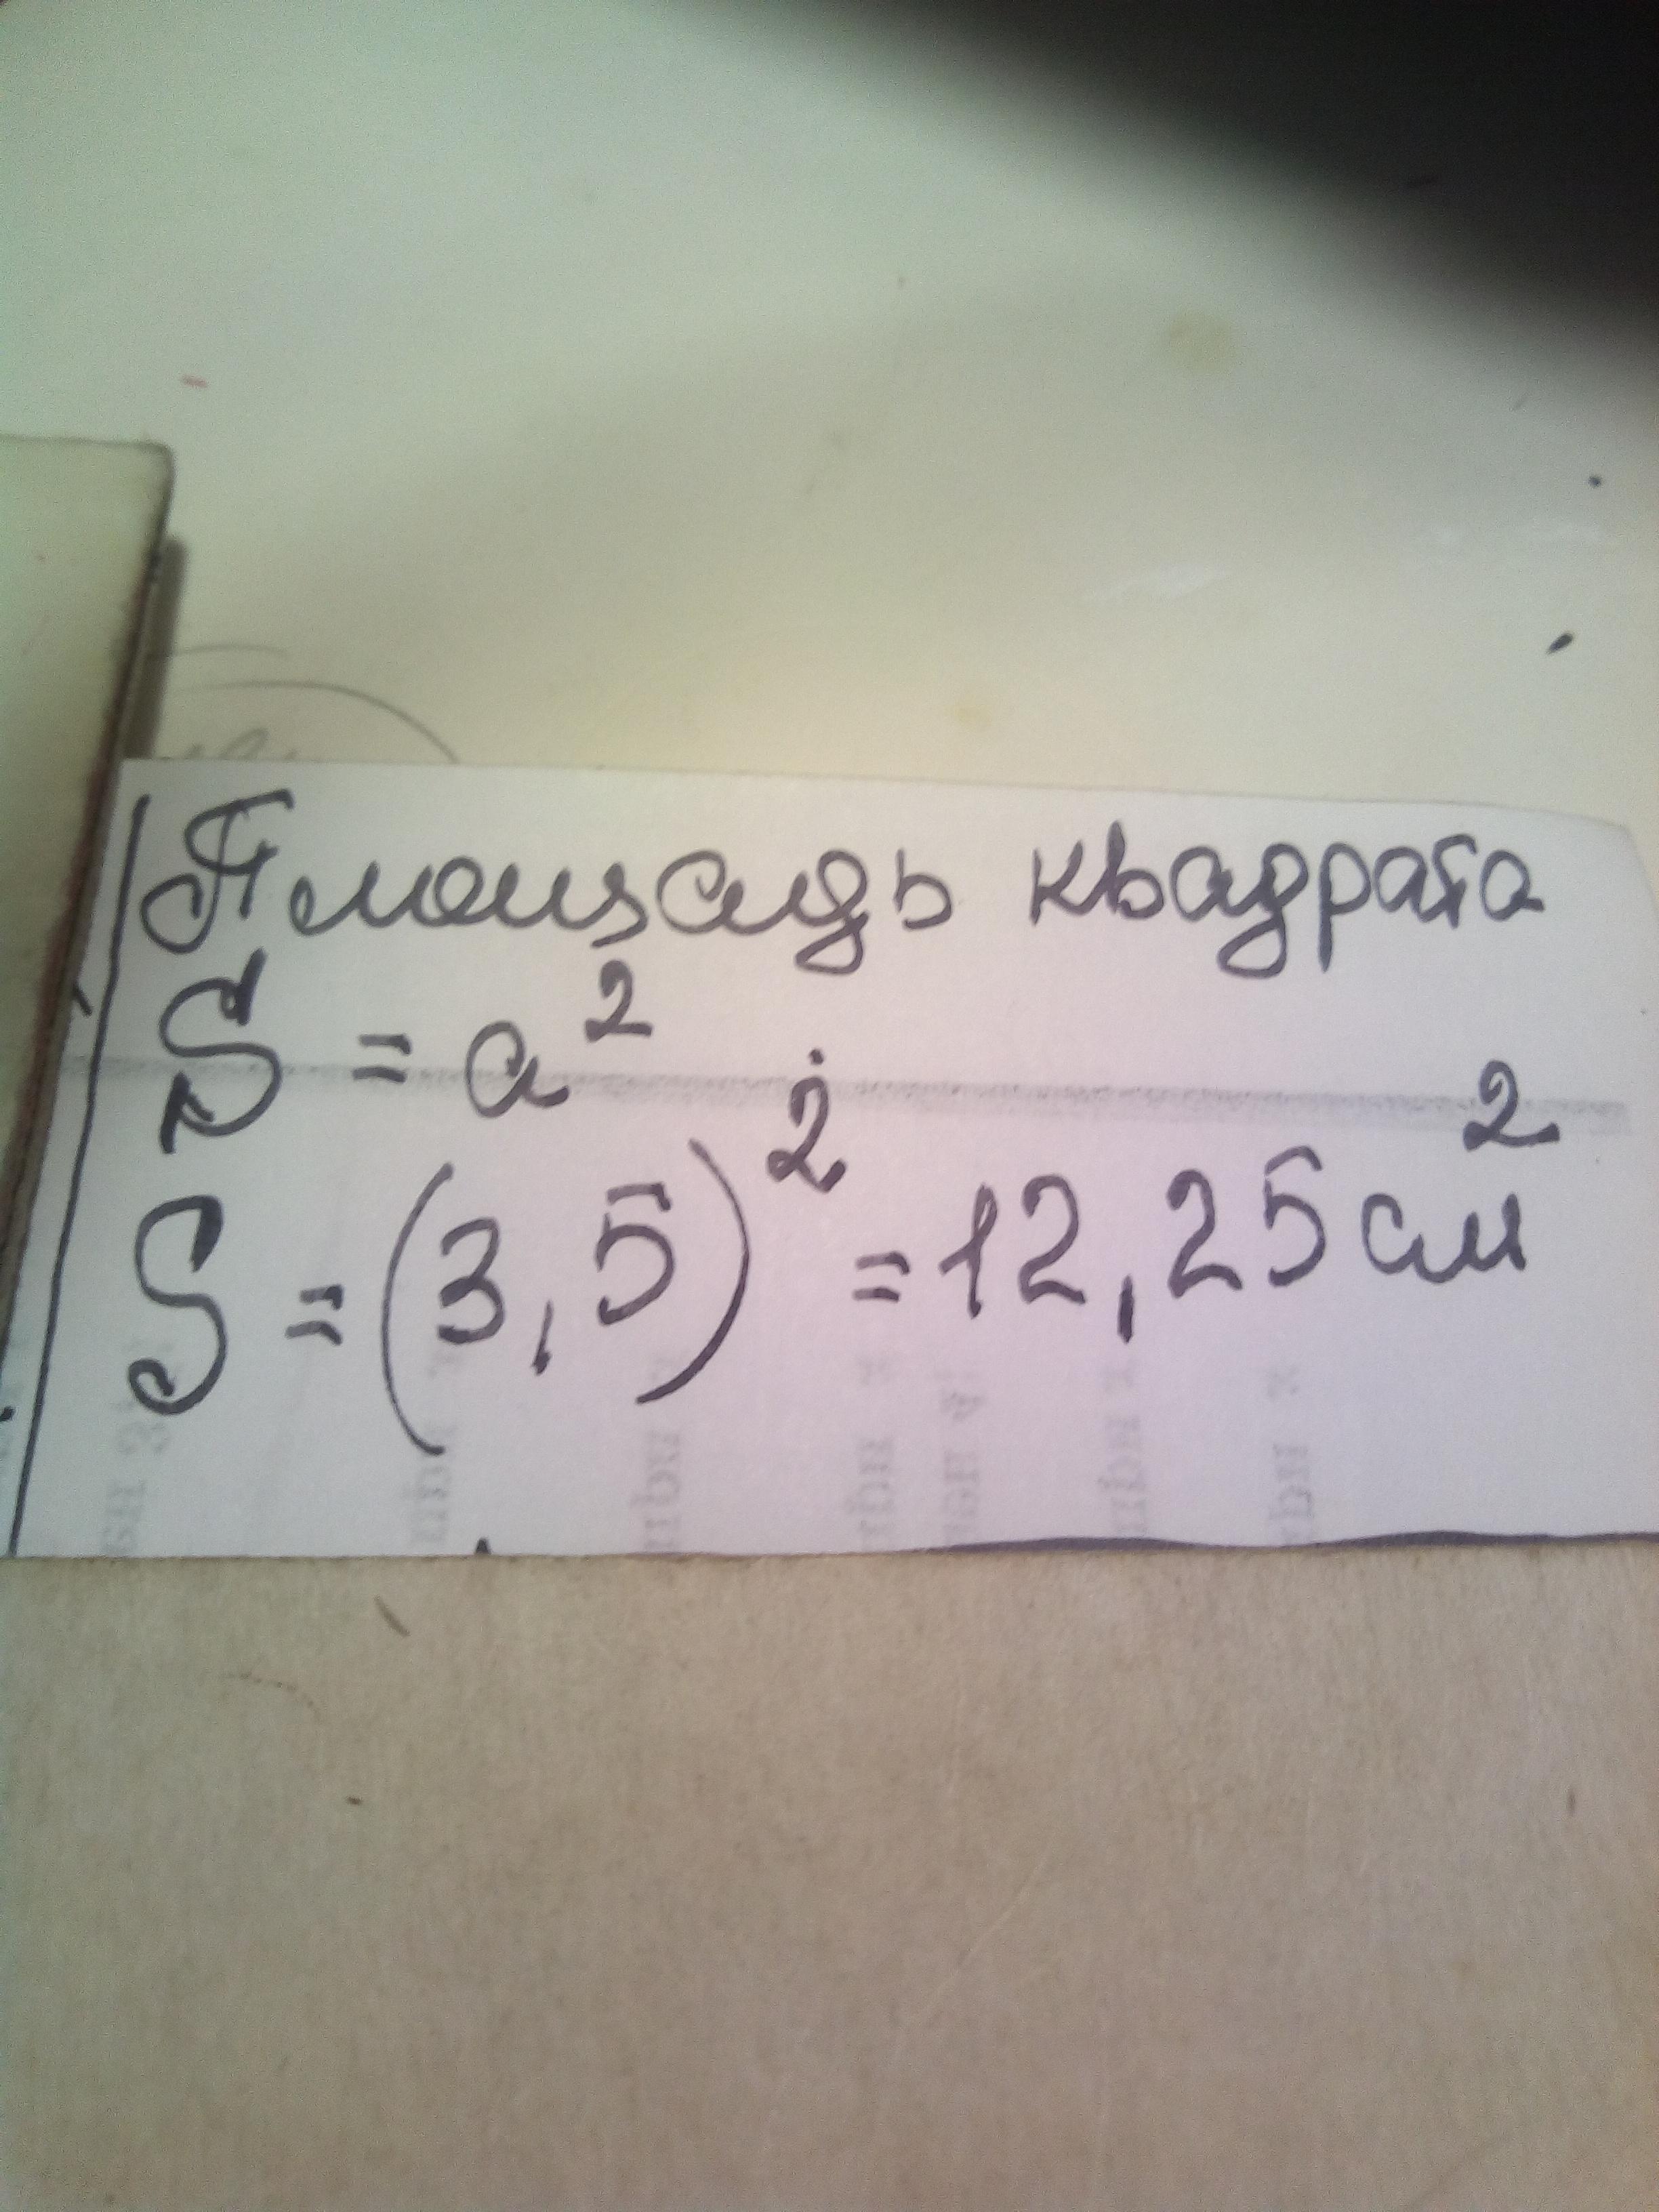 Площадь квадрата
S = a²
S = (3,5)² = 12,25 см²